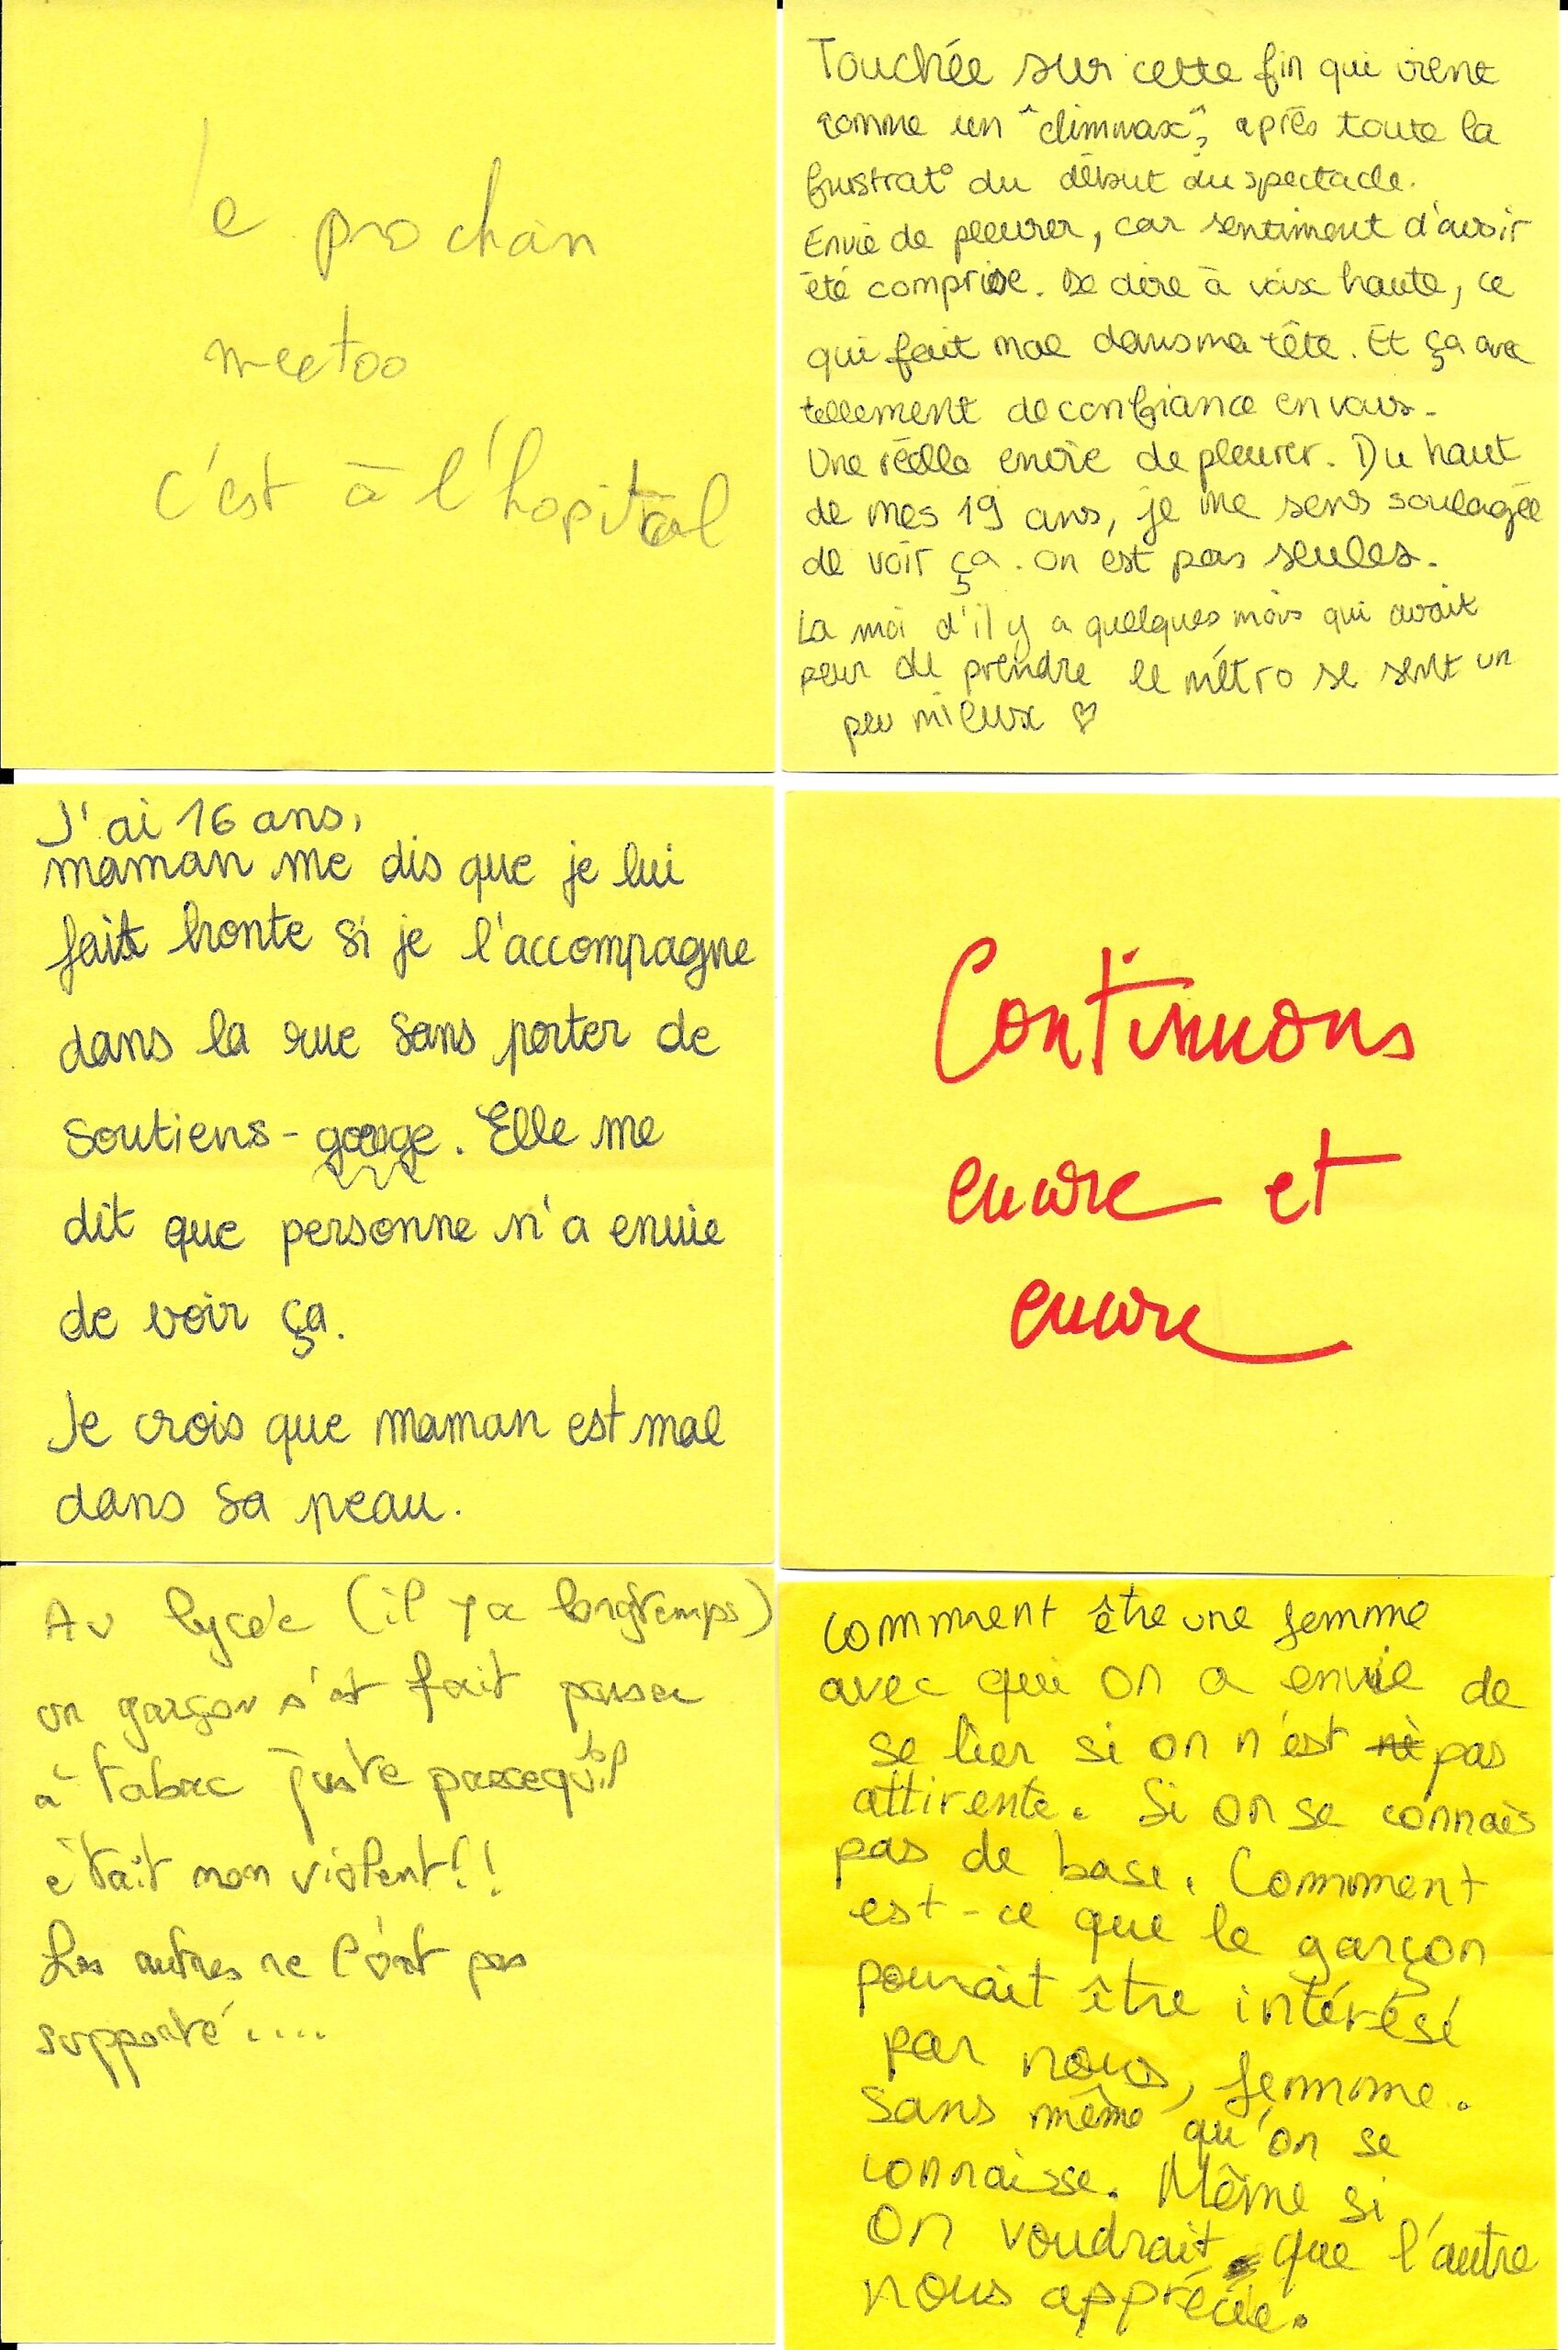 le prochain
meetoo
c'est à l'hopital
Touchée sur cette fin qui vient
comme un "climmax", après toute la
frustrat° du début du spectacle.
Envie de pleurer, car sentiment d'avoir
été comprise. De dire à voix haute, ce
qui fait mal dans ma tête. Et ça avec
tellement de confiance en vous.
Une réelle envie de pleurer. Du haut
de mes 19 ans, je me sens soulagée
de voir ça. On est pas seules.
La moi d'il y a quelques mois qui avait
peur de prendre le métro se sent un
peu mieux ♡
J'ai 16 ans,
maman me dis que je lui
fait honte si je l'accompagne
dans la rue sans porter de
soutiens-gorge. Elle me
dit que personne n'a envie
de voir ça.
Je crois que maman est mal
dans sa peau.
Continuons
encore et
encore
Au lycée (il y a longtemps)
un garçon s'est fait passer
à tabac juste parcequ'il
était non violent!!
Les autres ne l'ont pas
supporté....
comment être une femme
avec qui on a envie de
se lier si on n'est pas
attirente. Si on se connais
pas de base. Comment
est-ce que le garçon
pourait être intérésé
par nous, femme.
Sans même qu'on se
connaisse. Même si
on voudrait que l'autre
nous apprécie.